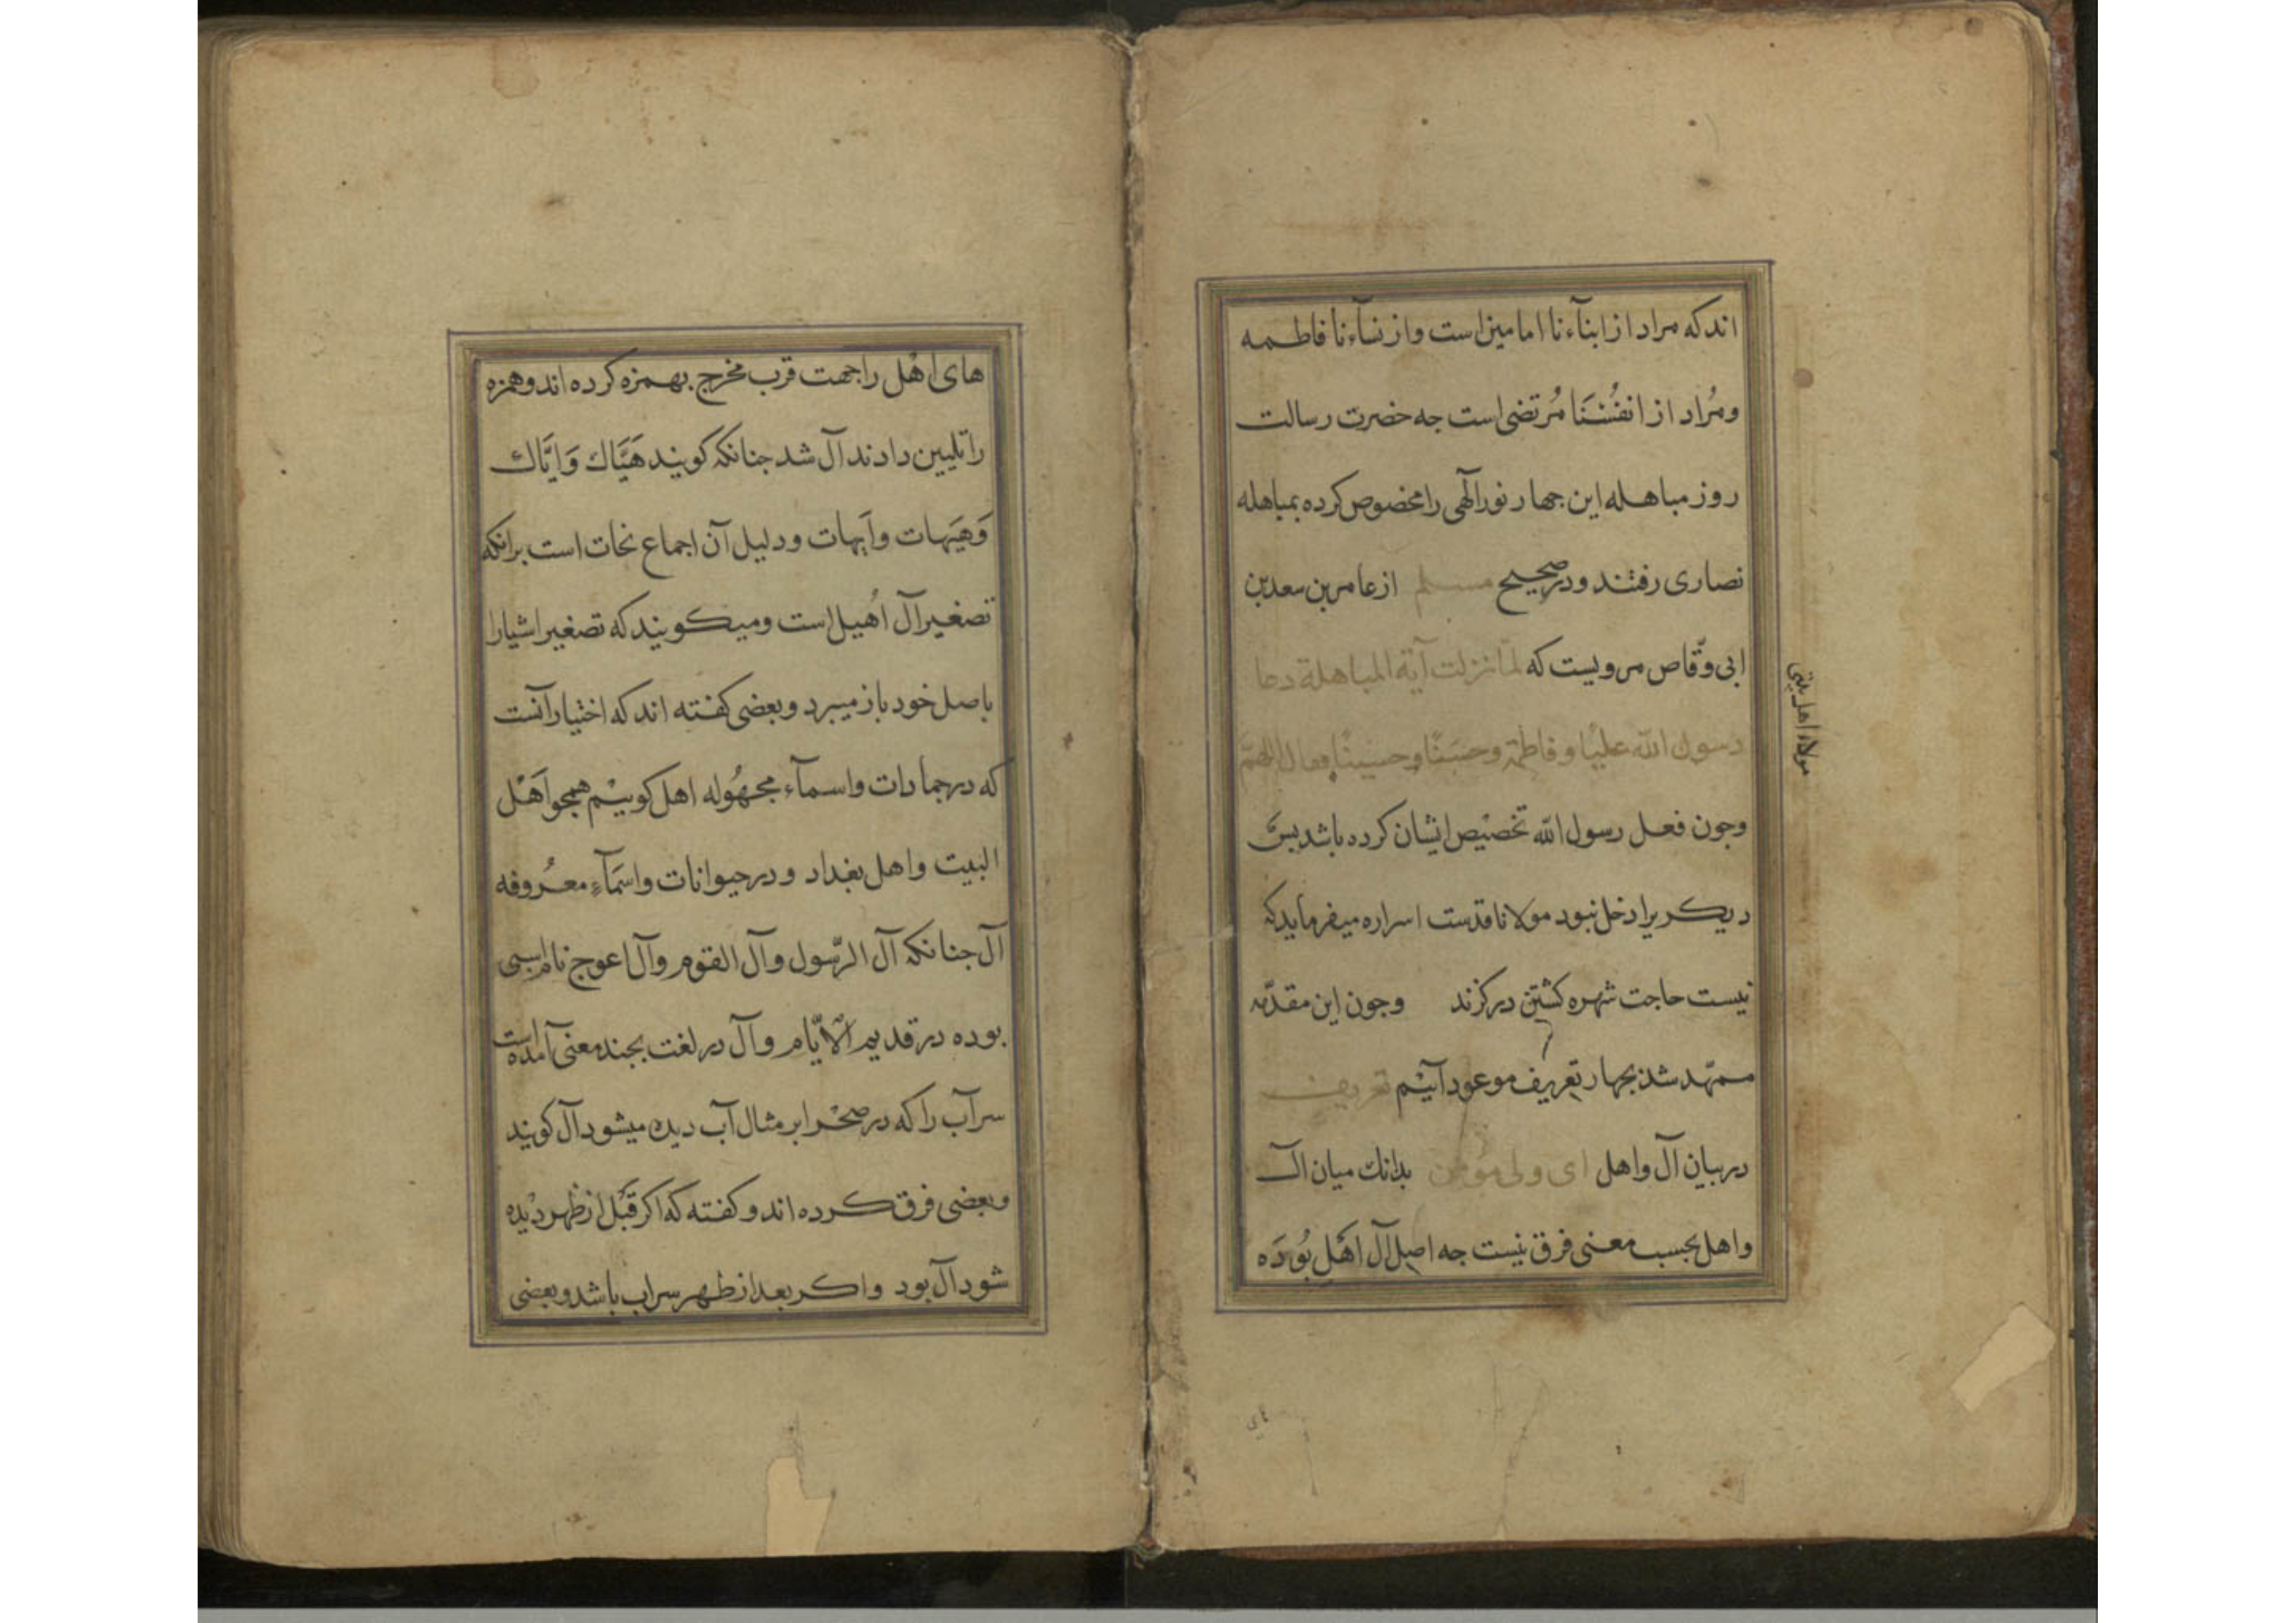 اند که مراد از ابنآءنا امامین است و از نسآءنا فاطمه
ومُراد از انفُسَنَا مُرتضی است جه حضرت رسالت
روز مباهله این جهار نور الٓهی را مخصوص کرده بمباهله
نصاری رفتند و در صحیح مسلم از عامر بن سعد بن
ابی وقّاص مرویست که لمّا نزلت آیة المباهلة دعا
رسول الله علیًا و فاطمة وحسَنًا وحسینًا فقال اللهمّ
وجون فعل رسول الله تخصیْص ایشان کرده باشد بسَ
دیکریرا دخل نبود مولانا قدست اسراره میفرماید که
نیست حاجت شهره کشتن در کزند وجون این مقدّمه
ممهّد شد بجهار تعریف موعود آییْم تعریف
در بیان آل واهل ای ولی مؤمن بدانك میان آل
واهل بحسب معنی فرق نیست جه اصل آل اَهْل بُودَه
مولاء اهل بیتی
های اَهْل را جهت قرب مخرج بهمزه کرده اند و همزه
را تلیین دادند آل شد جنانکه کویند هَیَّاك وَایَّاك
وَهَیَهات واَیهات و دلیل آن اجماع نحات است برانکه
تصغیر آل اُهَیل است ومیکویند که تصغیر اشیارا
باصل خود باز میبرد و بعضی کفته اند که اختیار آنست
که در جمادات واسمآء مجهُوله اهل کوییْم همجو اَهْل
البیت واهل بغداد و در حیوانات واسمَآءِ معرُوفه
آل جنانکه آل الرّسول وآل القوم وآل اعوج نام اسبی
بوده در قدیم الاَیّام و آل در لغت بجند معنی آمده است
سرآب را که در صحْرا بر مثال آب دیده میشود آل کویند
وبعضی فرق کرده اند و کفته که اکر قَبْل از ظهر دیْده
شود آل بود و اکر بعد از ظهر سراب باشد و بعضی